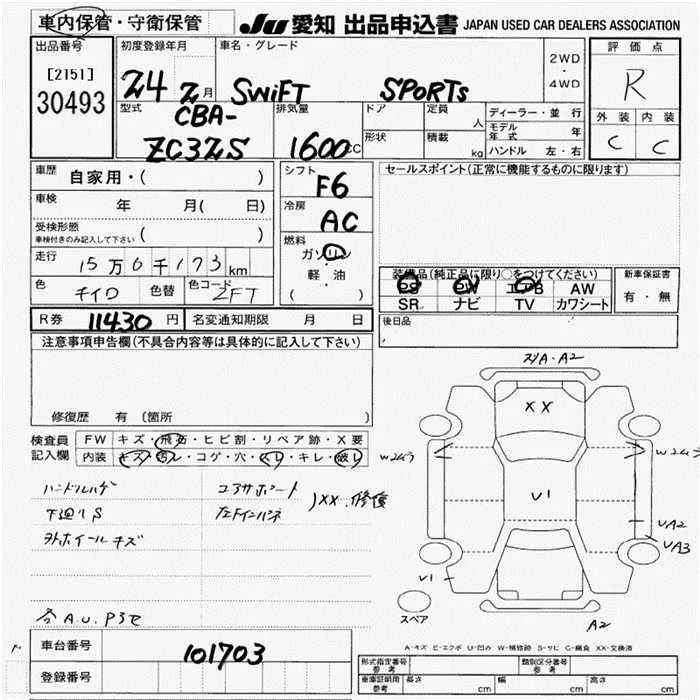 車内保管・守衛保管
JU 愛知 出品申込書 JAPAN USED CAR DEALERS ASSOCIATION
出品番号
[2151]
30493
初度登録年月
24 2月
車名・グレード
SWiFT SPORTs
2WD
・
4WD
評価点
R
外装 内装
C C
型式
CBA-
ZC32S
排気量
1600cc
ドア
形状
定員
人
積載
kg
ディーラー・並行
モデル年式 年
ハンドル 左・右
車歴
自家用・( )
車検
年 月( 日)
受検形態
車検付きのみ記入して下さい ( )
走行
15万6千173km
色
キイロ
色替
色コード
ZFT
シフト
F6
冷房
AC
燃料
ガソリン
・
軽油
( )
セールスポイント(正常に機能するものに限ります)
装備品(純正品に限り○をつけてください)
PS PW エアB AW
SR ナビ TV カワシート
新車保証書
有・無
R券 11430円
名変通知期限 月 日
後日品
注意事項申告欄(不具合内容等は具体的に記入して下さい)
修復歴 有 (箇所 )
検査員
記入欄
FW キズ・飛石・ヒビ割・リペア跡・X要
内装 キズ・汚レ・コゲ・穴・スレ・キレ・破レ
ハンドルハゲ
下廻りS
外ホイールキズ
コアサポート
左Fインパネ
XX.修復
A2
XX
V1
UA2
UA3
V1
A2
スペア
A-キズ E-エクボ U-凹み W-補修跡 S-サビ C-腐食 XX-交換済
車台番号
101703
登録番号
形式指定番号
参考
類別区分番号
参考
車庫証明用
参考
長さ cm
幅 cm
高さ cm